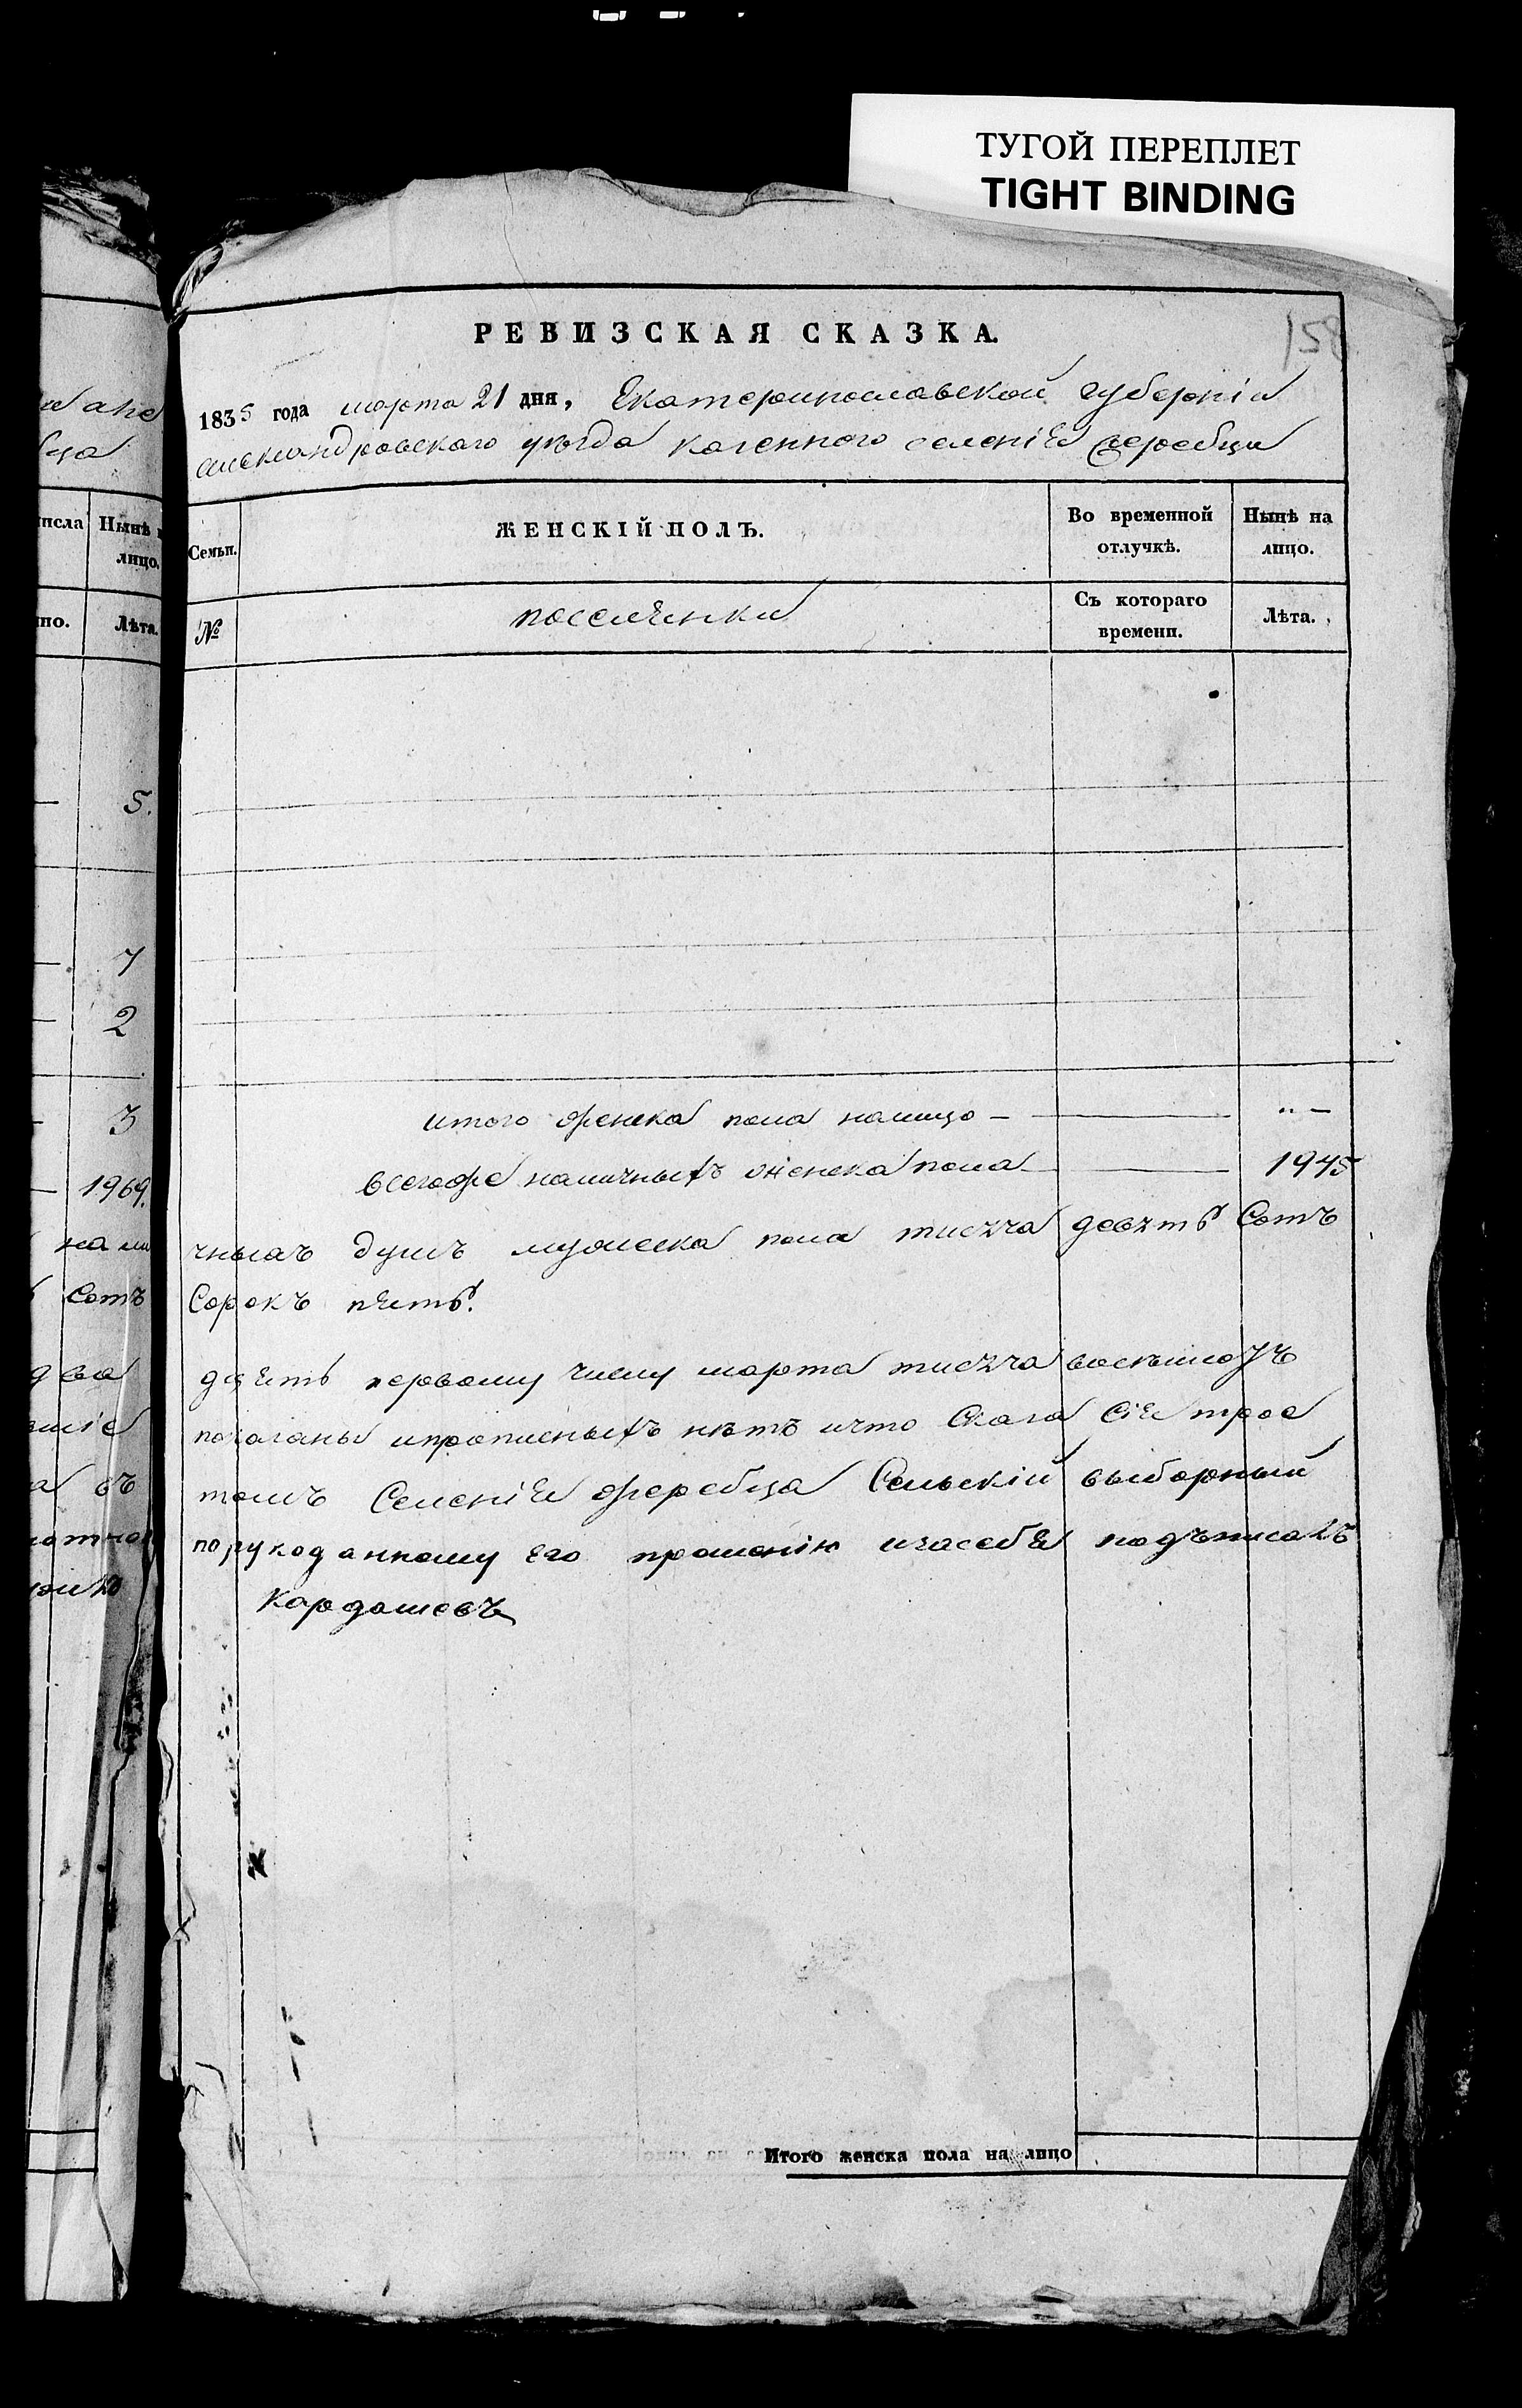 ТУГОЙ ПЕРЕПЛЕТ
TIGHT BINDING
РЕВИЗСКАЯ СКАЗКА.
158
1835 года марта 21 дня, Екатеринославской губерніи
александровского уѣзда казенного селенія жеребца
Семьи.
ЖЕНСКІЙ ПОЛЪ.
Во временной отлучкѣ.
Нынѣ на лицо.
№
поселенки
Съ котораго времени.
Лѣта.
итого женска пола налицо — — " —
всегоже наличныхъ женска пола — — 1945
чныхъ душъ мужеска пола тисяча девять Сотъ
Сорокъ пять.
дцять первому числу марта тисяча восемсотъ
показаны ипрописныхъ нѣтъ ичто Сказа Сія трое
томъ Селенія жеребца Сельскій выборный
порукоданному его прошенію изасебя подъписалъ
Кардашевъ
Итого женска пола на лицо
исла
Нынѣ
лицо.
но.
Лѣта.
5.
7
2
3
1969.
на ли
Сотъ
два
въ